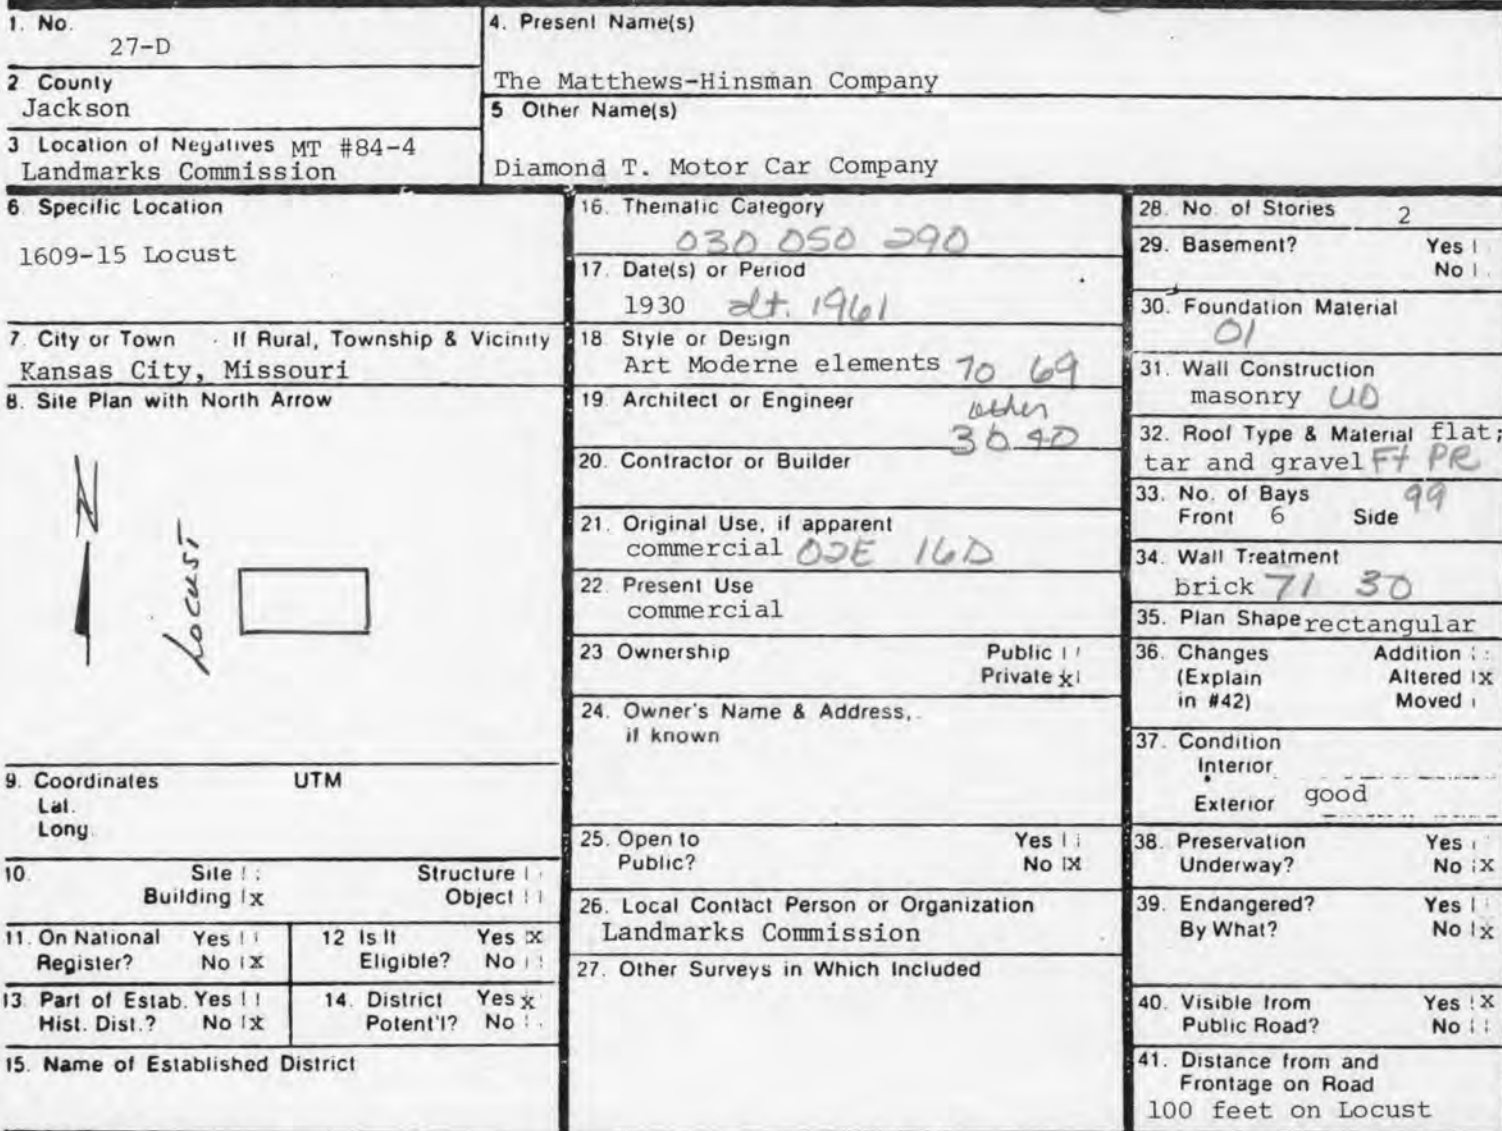 1. No.
27-D
2 County
Jackson
3 Location of Negatives MT #84-4
Landmarks Commission
4. Present Name(s)
The Matthews-Hinsman Company
5 Other Name(s)
Diamond T. Motor Car Company
6 Specific Location
1609-15 Locust
7. City or Town If Rural, Township & Vicinity
Kansas City, Missouri
8. Site Plan with North Arrow
N
Locust
9. Coordinates UTM
Lat.
Long.
10. Site Structure
Building x Object
11. On National Yes
Register? No x
12 Is It Yes x
Eligible? No
13. Part of Estab. Yes
Hist. Dist.? No x
14. District Yes x
Potent'l? No
15. Name of Established District
16. Thematic Category
030 050 290
17. Date(s) or Period
1930 alt. 1961
18 Style or Design
Art Moderne elements 70 69
19. Architect or Engineer other
30 40
20. Contractor or Builder
21. Original Use, if apparent
commercial 02E 16D
22 Present Use
commercial
23 Ownership Public
Private x
24. Owner's Name & Address,
if known
25. Open to Yes
Public? No x
26. Local Contact Person or Organization
Landmarks Commission
27. Other Surveys in Which Included
28. No. of Stories 2
29. Basement? Yes
No
30. Foundation Material
01
31. Wall Construction
masonry UD
32. Roof Type & Material flat;
tar and gravel Ft PR
33. No. of Bays 99
Front 6 Side
34. Wall Treatment
brick 71 30
35. Plan Shape rectangular
36. Changes Addition
(Explain Altered x
in #42) Moved
37. Condition
Interior
Exterior good
38. Preservation Yes
Underway? No x
39. Endangered? Yes
By What? No x
40. Visible from Yes x
Public Road? No
41. Distance from and
Frontage on Road
100 feet on Locust